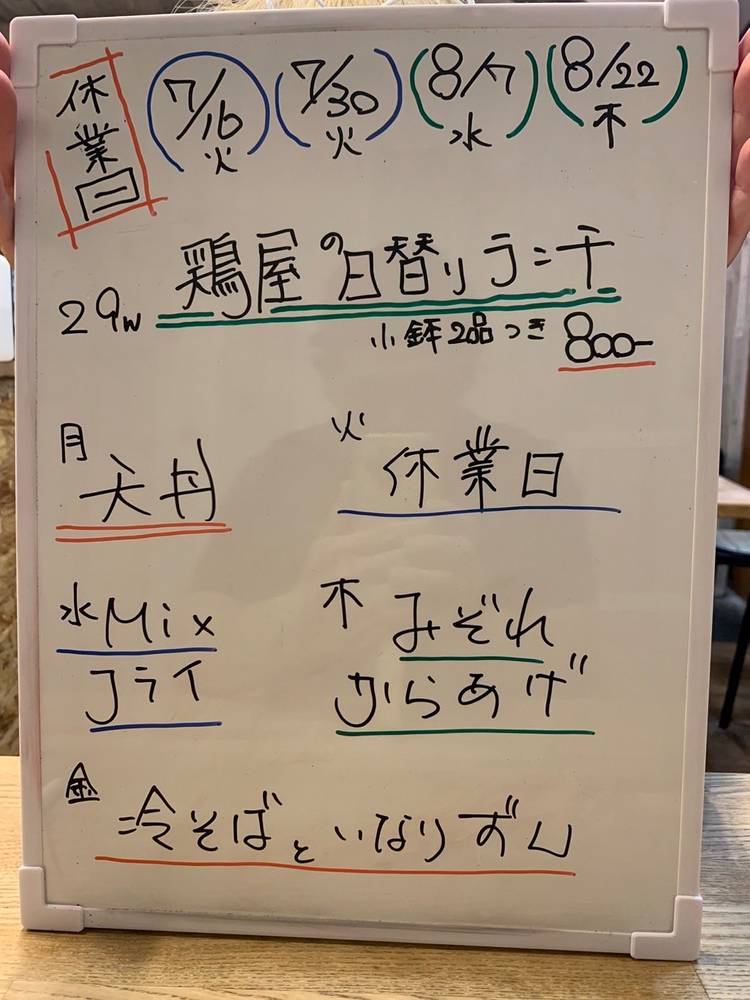 休業日
7/16 7/30 8/7 8/22
火 火 水 木
鶏屋の日替りランチ
29w
小鉢2品つき 800-
月
天丼
火
休業日
水 Mix
フライ
木 みぞれ
からあげ
金
冷そばといなりずし